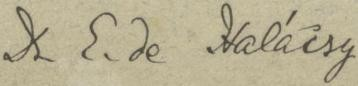 Dr. E. de Halácsy